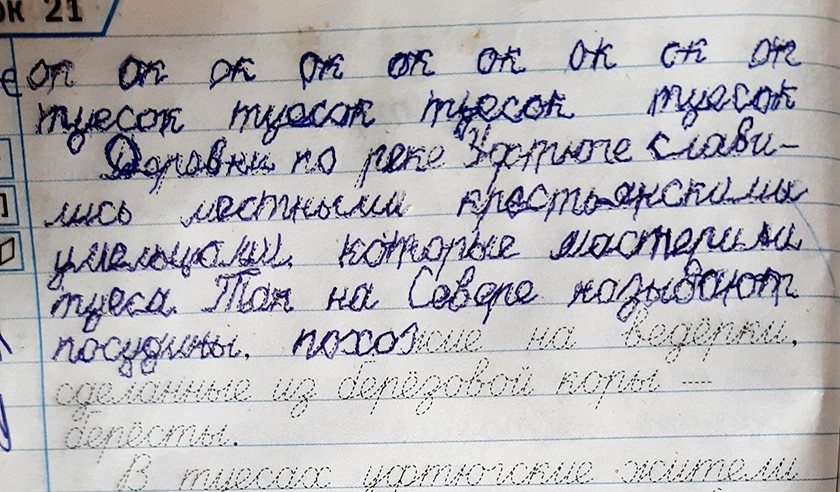 ок 21
ок ок ок ок ок ок ок ок ок
туесок туесок туесок туесок
Деревни по реке Уфтюге слави-
лись местными крестьянскими
умельцами, которые мастерили
туеса. Так на Севере называют
посудины, похожие на ведёрки,
сделанные из берёзовой коры —
бересты.
В туесах уфтюгские жители